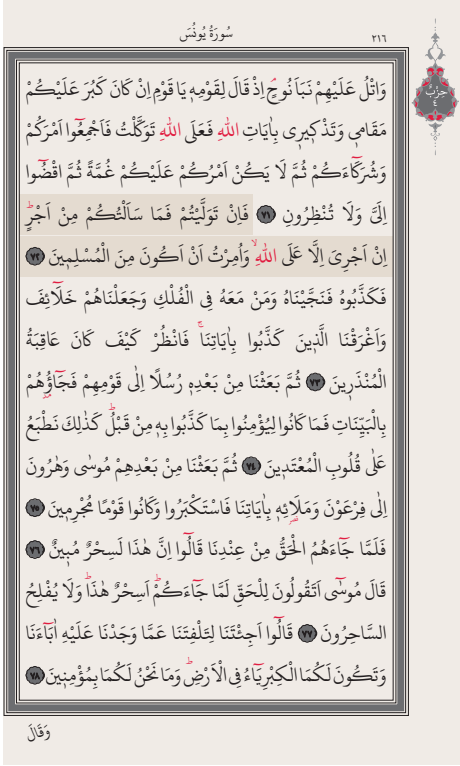 سُورَةُ يُونُسَ
٢١٦
حِزْبُ
٤
وَاتْلُ عَلَيْهِمْ نَبَاَ نُوحٍۢ اِذْ قَالَ لِقَوْمِه۪ يَا قَوْمِ اِنْ كَانَ كَبُرَ عَلَيْكُمْ
مَقَام۪ي وَتَذْك۪ير۪ي بِاٰيَاتِ اللّٰهِ فَعَلَى اللّٰهِ تَوَكَّلْتُ فَاَجْمِعُٓوا اَمْرَكُمْ
وَشُرَكَٓاءَكُمْ ثُمَّ لَا يَكُنْ اَمْرُكُمْ عَلَيْكُمْ غُمَّةً ثُمَّ اقْضُٓوا
اِلَيَّ وَلَا تُنْظِرُونِ ﴿٧١﴾ فَاِنْ تَوَلَّيْتُمْ فَمَا سَاَلْتُكُمْ مِنْ اَجْرٍۜ
اِنْ اَجْرِيَ اِلَّا عَلَى اللّٰهِۙ وَاُمِرْتُ اَنْ اَكُونَ مِنَ الْمُسْلِم۪ينَ ﴿٧٢﴾
فَكَذَّبُوهُ فَنَجَّيْنَاهُ وَمَنْ مَعَهُ فِي الْفُلْكِ وَجَعَلْنَاهُمْ خَلَٓائِفَ
وَاَغْرَقْنَا الَّذ۪ينَ كَذَّبُوا بِاٰيَاتِنَاۚ فَانْظُرْ كَيْفَ كَانَ عَاقِبَةُ
الْمُنْذَر۪ينَ ﴿٧٣﴾ ثُمَّ بَعَثْنَا مِنْ بَعْدِه۪ رُسُلًا اِلٰى قَوْمِهِمْ فَجَٓاؤُ۫هُمْ
بِالْبَيِّنَاتِ فَمَا كَانُوا لِيُؤْمِنُوا بِمَا كَذَّبُوا بِه۪ مِنْ قَبْلُۜ كَذٰلِكَ نَطْبَعُ
عَلٰى قُلُوبِ الْمُعْتَد۪ينَ ﴿٧٤﴾ ثُمَّ بَعَثْنَا مِنْ بَعْدِهِمْ مُوسٰى وَهٰرُونَ
اِلٰى فِرْعَوْنَ وَمَلَا۬ئِه۪ بِاٰيَاتِنَا فَاسْتَكْبَرُوا وَكَانُوا قَوْمًا مُجْرِم۪ينَ ﴿٧٥﴾
فَلَمَّا جَٓاءَهُمُ الْحَقُّ مِنْ عِنْدِنَا قَالُٓوا اِنَّ هٰذَا لَسِحْرٌ مُب۪ينٌ ﴿٧٦﴾
قَالَ مُوسٰٓى اَتَقُولُونَ لِلْحَقِّ لَمَّا جَٓاءَكُمْۜ اَسِحْرٌ هٰذَاۜ وَلَا يُفْلِحُ
السَّاحِرُونَ ﴿٧٧﴾ قَالُٓوا اَجِئْتَنَا لِتَلْفِتَنَا عَمَّا وَجَدْنَا عَلَيْهِ اٰبَٓاءَنَا
وَتَكُونَ لَكُمَا الْكِبْرِيَٓاءُ فِي الْاَرْضِۜ وَمَا نَحْنُ لَكُمَا بِمُؤْمِن۪ينَ ﴿٧٨﴾
وَقَالَ